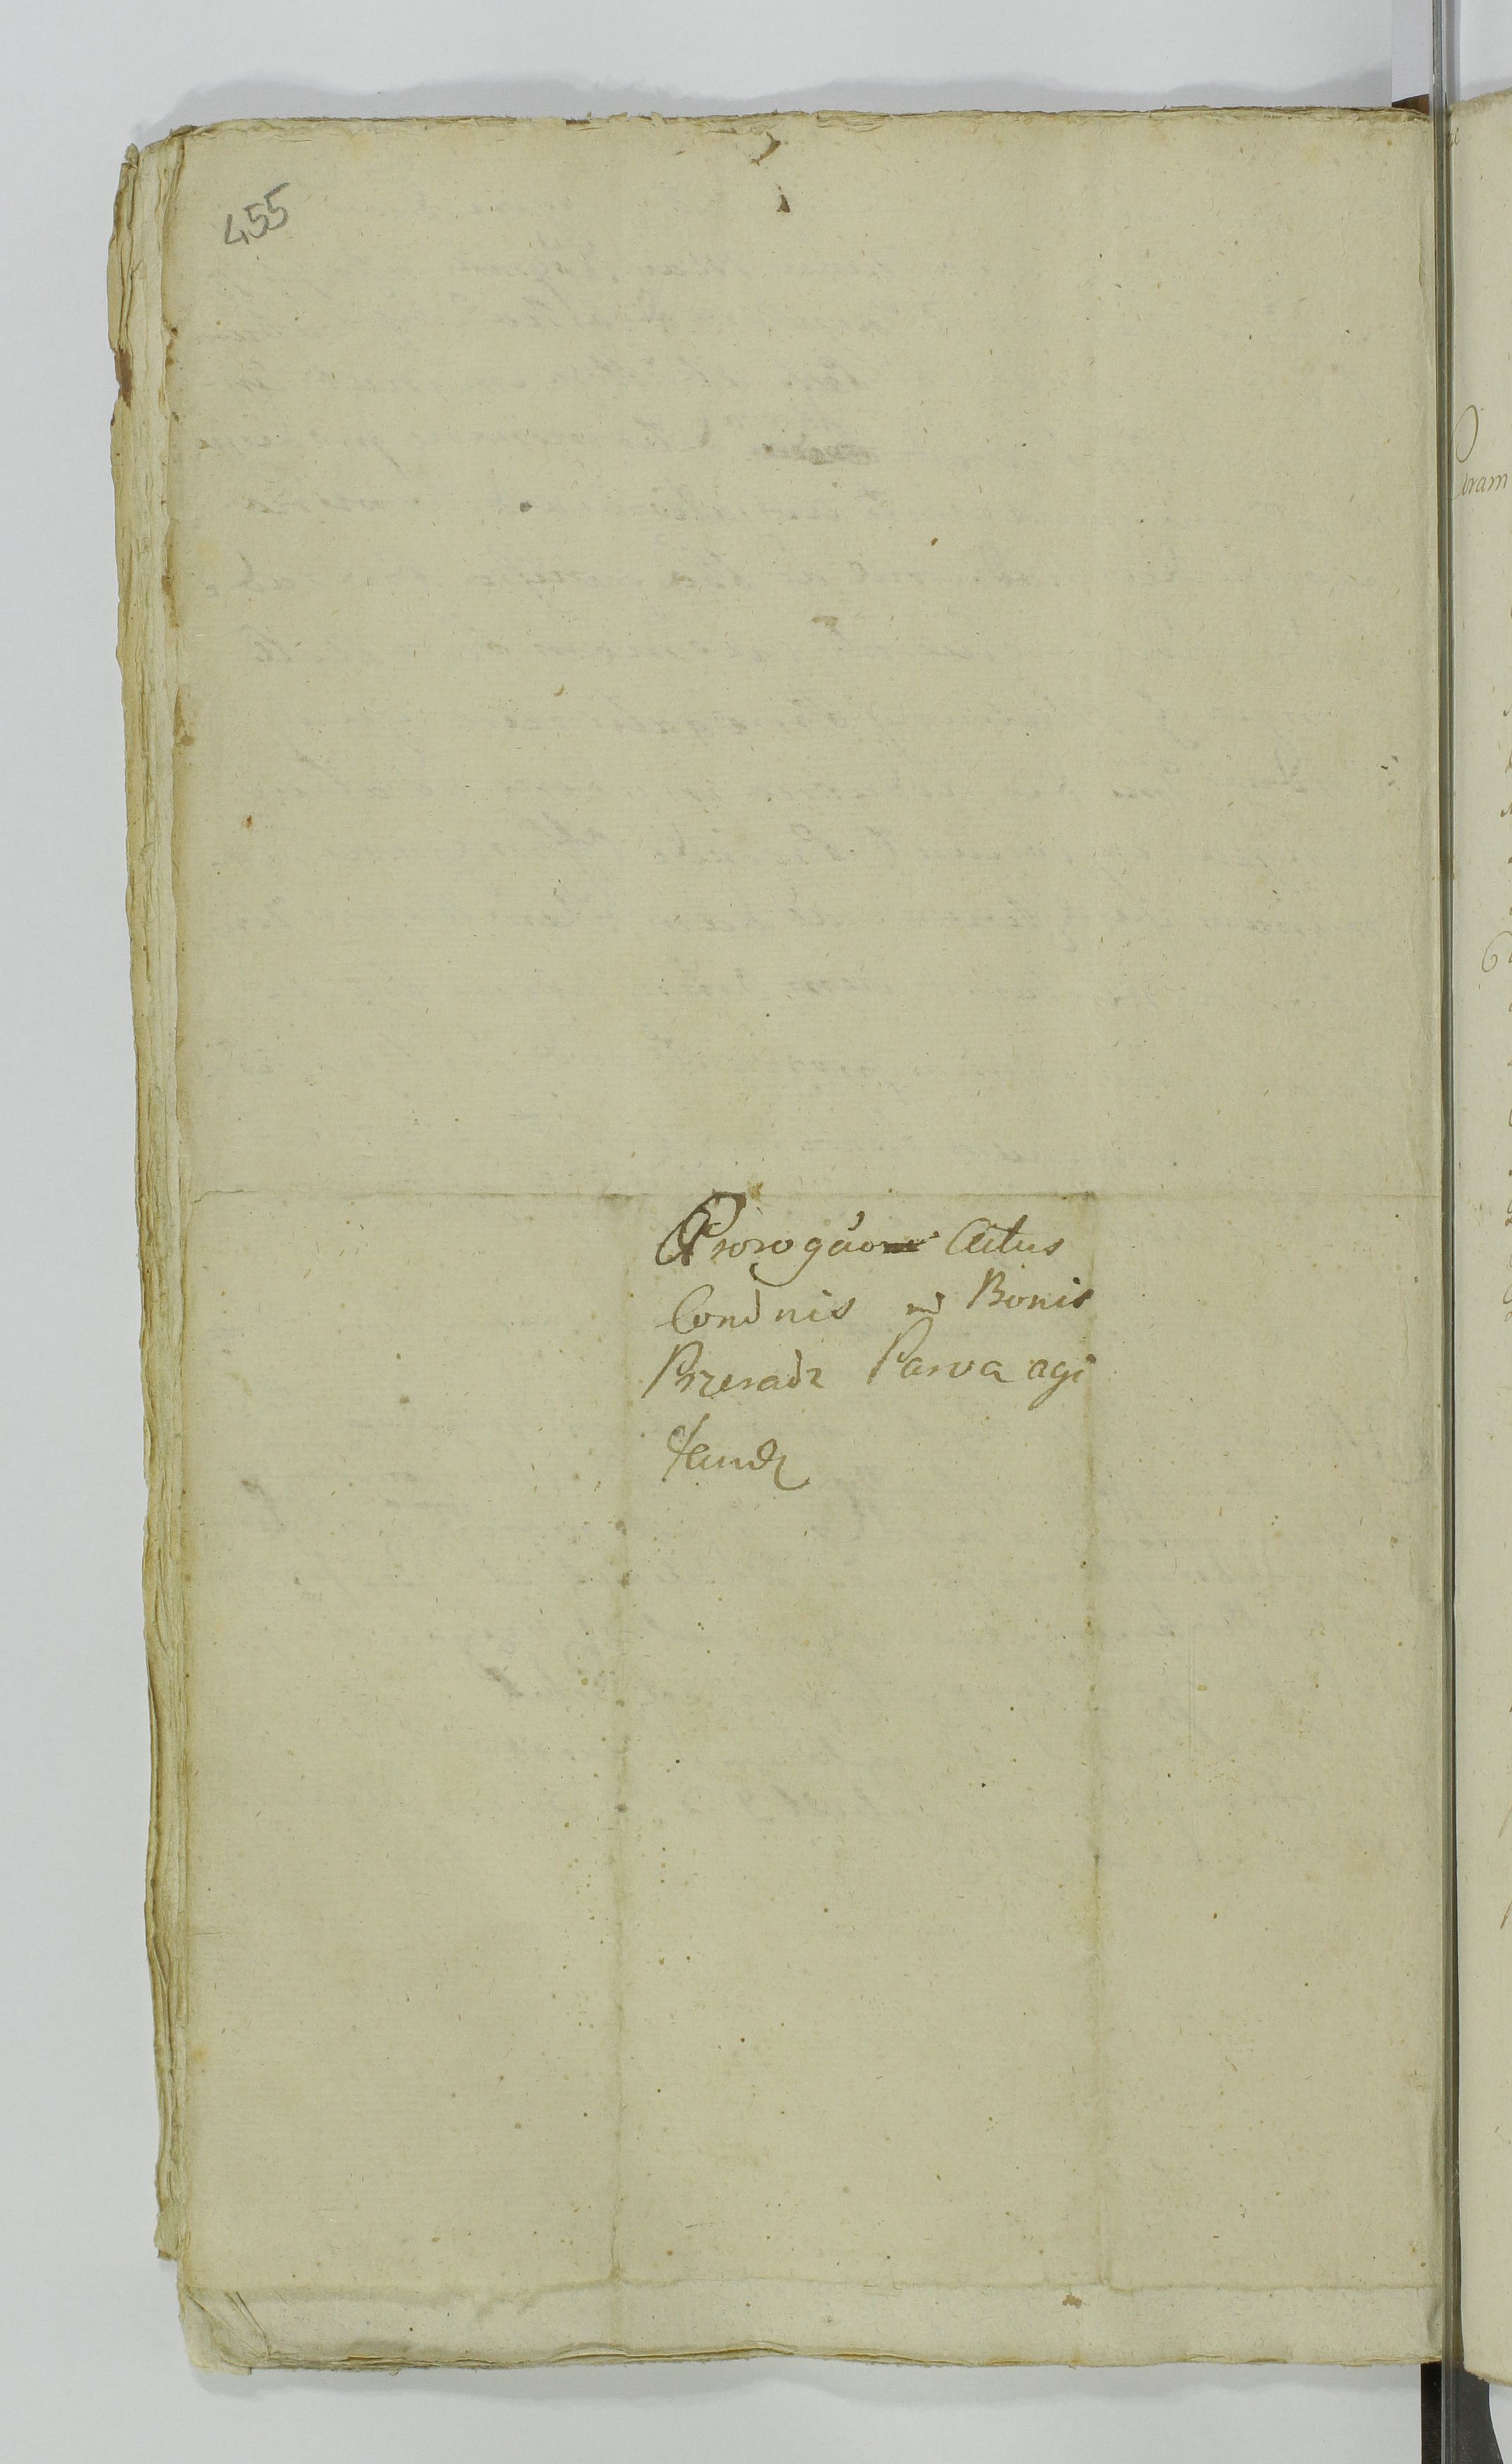 455
Prorogãom Actus
Condnis in Bonis
Przeradz Parva agi
tandi